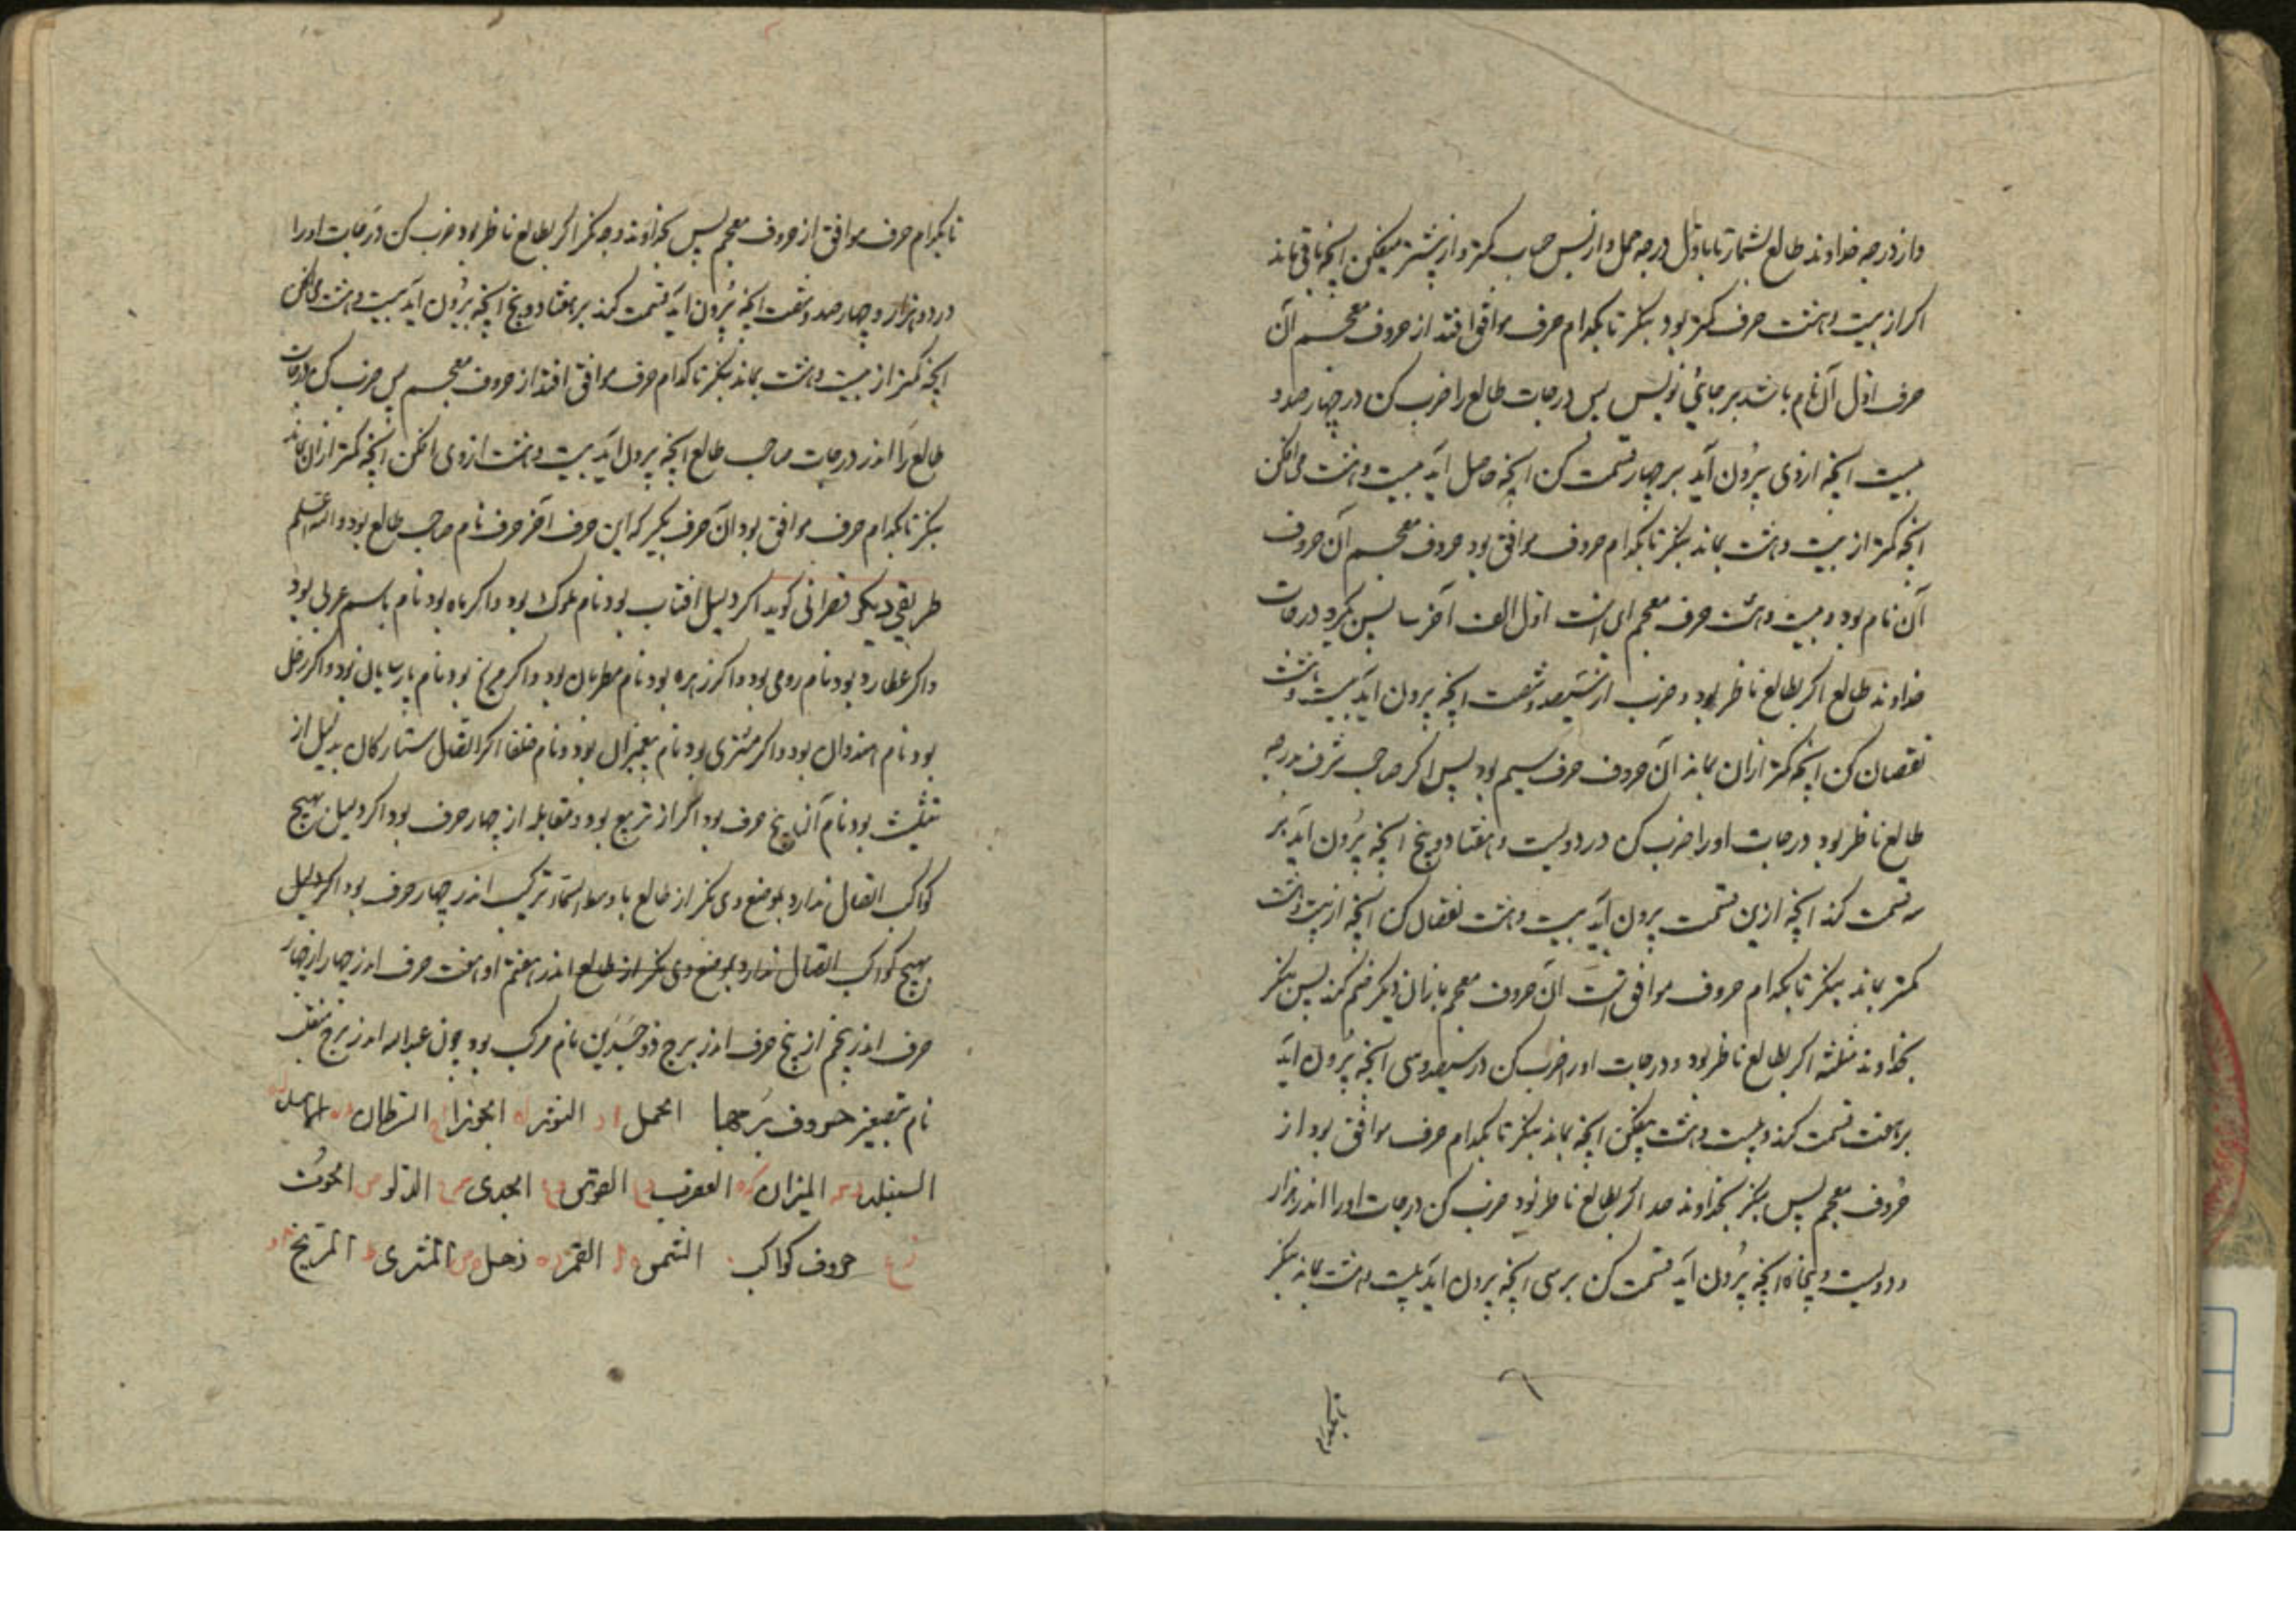 واز درجه خداوند طالع بشمار تا باول درجه حمل واز پس حساب کمتر و از بیشتر میفکن انچه باقی ماند
اکر از بیست وهشت حرف کمتر بود بنکر تا بکدام حرف موافق افتد از حروف معجم آن
حرف اول آن نام باشد بر جائی نویس پس درجات طالع را ضرب کن در چهار صد و
بیست انچه ازوی بیرون آید بر چهار قسمت کن انچه حاصل اید بیست وهشت می افکن
انچه کمتر از بیست وهشت بماند بنکر تا بکدام حروف موافق بود حروف معجم آن حروف
آن نام بود و بیست وهشت حرف معجم این است اول الف آخر پس بکیرد درجات
خداوند طالع اکر بطالع ناظر بود و ضرب از سیصد وشصت انچه بیرون اید بیست وهشت
نقصان کن انچه کمتر ازان بماند آن حروف حرف سیم بود پس اکر صاحب شرف درجه
طالع ناظر بود درجات اورا ضرب کن در دویست و هفتاد و پنج انچه بیرون اید بر
سه قسمت کند انچه ازین قسمت بیرون آید بیست وهشت نقصان کن انچه از بیست وهشت
کمتر بماند بنکر تا بکدام حروف موافق است آن حروف معجم بازان دیکر ضم کند پس بنکر
بخداوند مثلثه اکر بطالع ناظر بود ودرجات اورا ضرب کن در سیصد وسی انچه بیرون اید
بر هفت قسمت کند و بیست وهشت بیفکن انچه بماند بنکر تا بکدام حرف موافق بود از
حروف معجم پس بنکر بخداوند حد اکر بطالع ناظر بود ضرب کن درجات اورا اندر هزار
و دویست و پنجاه انچه بیرون آید قسمت کن بر سی انچه بیرون اید بیست وهشت بماند بنکر
تا بکدام
تا بکدام حرف موافق از حروف معجم پس بخداوند وجه بنکر اکر بطالع ناظر بود ضرب کن درجات اورا
در دو هزار و چهار صد وشصت انچه بیرون آید قسمت کند بر هفتاد و پنج انچه بیرون اید بیست وهشت می افکن
انچه کمتر از بیست وهشت بماند بنکر تا کدام حرف موافق افتد از حروف معجم پس ضرب کن درجات
طالع را اندر درجات صاحب طالع انچه بیرون اید بیست وهشت ازوی افکن انچه کمتر ازان بماند
بنکر تا بکدام حرف موافق بود آن حرف بکیر که این حرف آخر حرف نام صاحب طالع بود والله اعلم
طریقی دیکر قصرانی کوید اکر دلیل افتاب بود نام ملوک بود واکر ماه بود نام باسم عربی بود
واکر عطارد بود نام رومی بود واکر زهره بود نام مطربان بود واکر مریخ بود نام پارسایان بود واکر زحل
بود نام هندوان بود واکر مشتری بود نام پیغمبران بود ونام خلفا اکر اتصال ستارکان بدلیل از
تثلیث بود نام آن پنج حرف بود اکر از تربیع بود ومقابله از چهار حرف بود اکر دلیل بهیچ
کواکب اتصال ندارد بموضع وی نکر از طالع با وسط السما ترکیب اندر چهار حرف بود اکر دلیل
بهیچ کواکب اتصال ندارد بموضع وی نکر از طالع اندر هفتم او هفت حرف اندر چهار از چهار
حرف اندر پنجم از پنج حرف اندر برج ذو جسدین نام مرکب بود چون عبدالله اندر برج منقلب
نام تصغیر حروف برجها الحمل الثور الجوزا السرطان الاسد
السنبله المیزان العقرب القوس الجدی الدلو الحوت
حروف کواکب الشمس القمر زحل المشتری المریخ